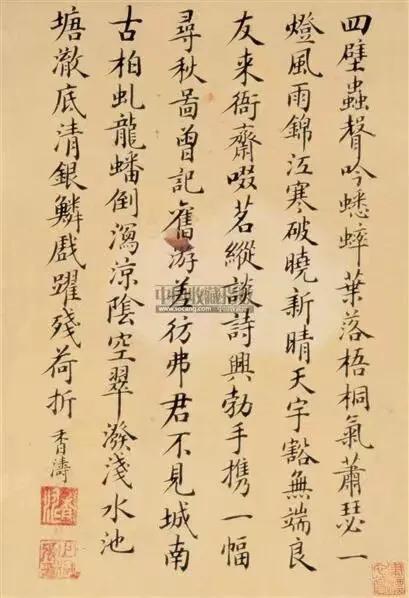 四壁蟲聲吟蟋蟀葉落梧桐氣蕭瑟一
燈風雨錦江寒破曉新晴天宇豁無端良
友来衙齋啜茗縱談詩興勃手携一幅
尋秋啚曾記舊游差彷弗君不見城南
古柏虬龍蟠倒瀉凉陰空翠潑淺水池
塘澈底清銀鱗戲躍殘荷折 香濤
www.socang.com